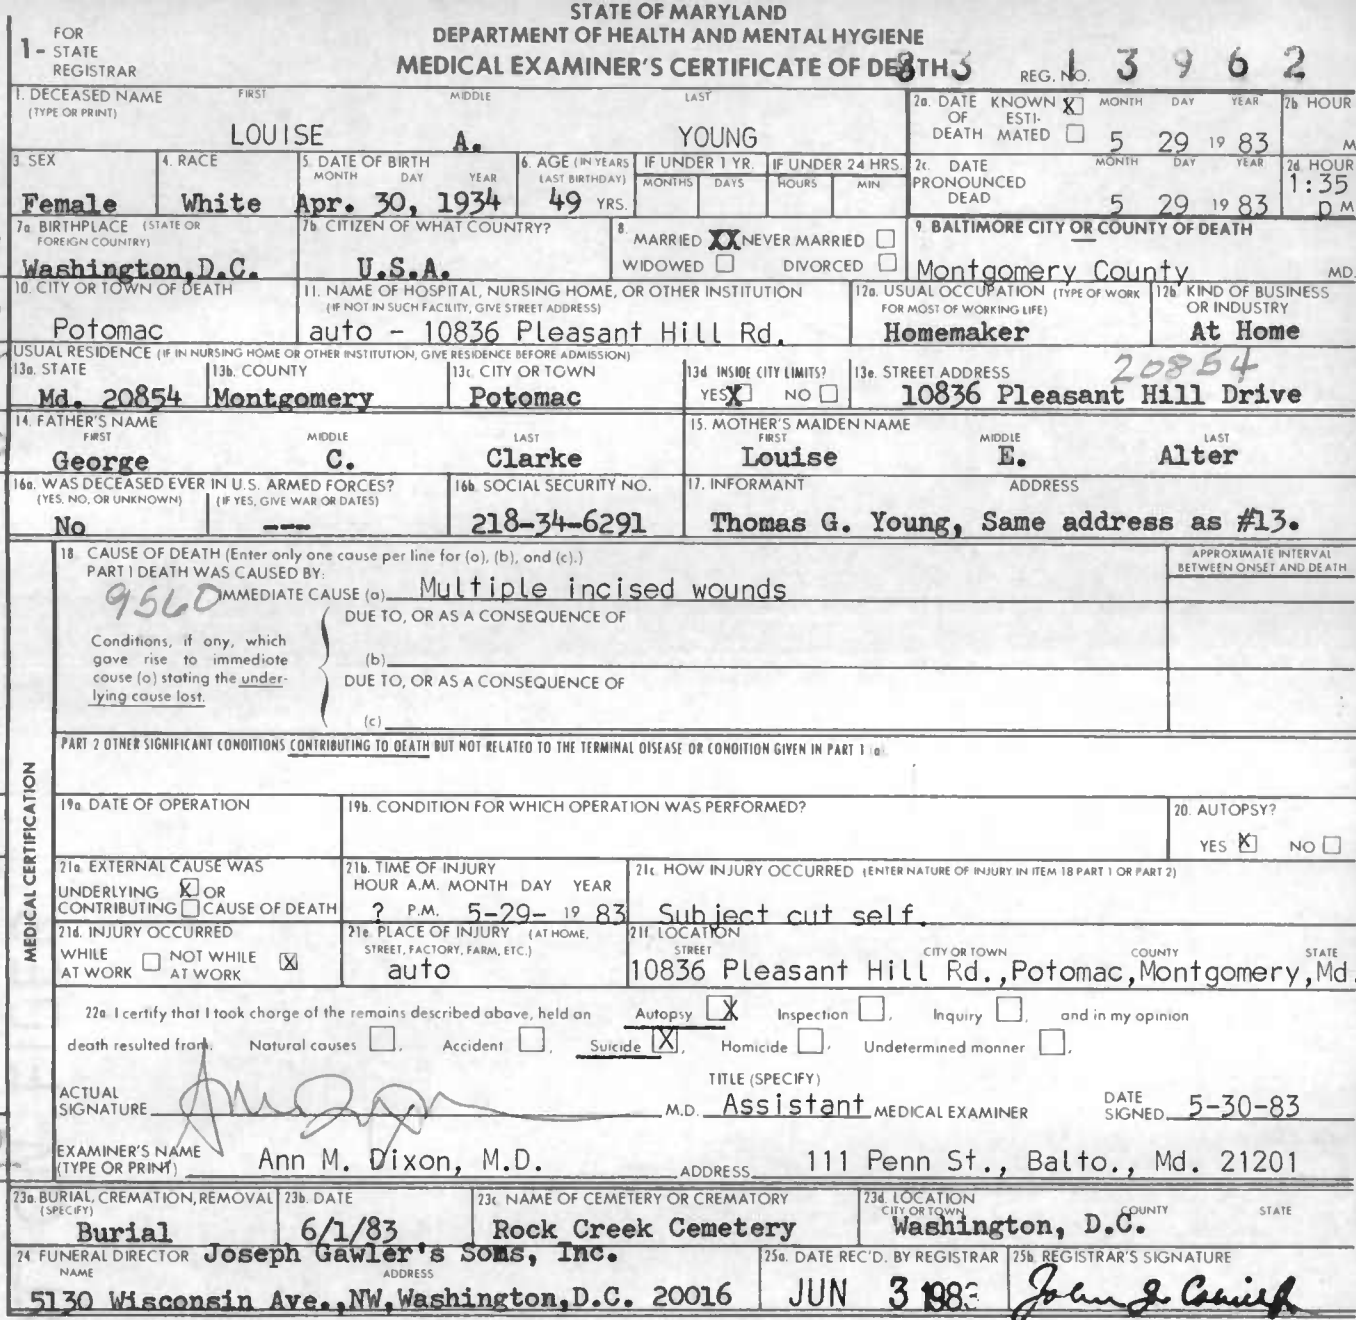 STATE OF MARYLAND
DEPARTMENT OF HEALTH AND MENTAL HYGIENE
MEDICAL EXAMINER'S CERTIFICATE OF DEATH
1- FOR STATE REGISTRAR
REG. NO. 83 13962
1. DECEASED NAME (TYPE OR PRINT) FIRST MIDDLE LAST
LOUISE A. YOUNG
2a. DATE OF DEATH KNOWN X ESTIMATED MONTH DAY YEAR 2b HOUR
5 29 19 83 M
3. SEX 4. RACE 5. DATE OF BIRTH MONTH DAY YEAR 6. AGE (IN YEARS LAST BIRTHDAY) IF UNDER 1 YR. MONTHS DAYS IF UNDER 24 HRS. HOURS MIN
Female White Apr. 30, 1934 49 YRS.
2c. DATE PRONOUNCED DEAD MONTH DAY YEAR 2d HOUR
5 29 19 83 1:35 p M
7a BIRTHPLACE (STATE OR FOREIGN COUNTRY) 7b. CITIZEN OF WHAT COUNTRY?
Washington,D.C. U.S.A.
8. MARRIED XX NEVER MARRIED
WIDOWED DIVORCED
9. BALTIMORE CITY OR COUNTY OF DEATH
Montgomery County MD.
10. CITY OR TOWN OF DEATH 11. NAME OF HOSPITAL, NURSING HOME, OR OTHER INSTITUTION (IF NOT IN SUCH FACILITY, GIVE STREET ADDRESS)
Potomac auto - 10836 Pleasant Hill Rd.
12a. USUAL OCCUPATION (TYPE OF WORK FOR MOST OF WORKING LIFE) 12b. KIND OF BUSINESS OR INDUSTRY
Homemaker At Home
USUAL RESIDENCE (IF IN NURSING HOME OR OTHER INSTITUTION, GIVE RESIDENCE BEFORE ADMISSION)
13a. STATE 13b. COUNTY 13c. CITY OR TOWN 13d. INSIDE CITY LIMITS? 13e. STREET ADDRESS 20854
Md. 20854 Montgomery Potomac YES X NO 10836 Pleasant Hill Drive
14. FATHER'S NAME FIRST MIDDLE LAST 15. MOTHER'S MAIDEN NAME FIRST MIDDLE LAST
George C. Clarke Louise E. Alter
16a. WAS DECEASED EVER IN U.S. ARMED FORCES? (YES, NO, OR UNKNOWN) (IF YES, GIVE WAR OR DATES) 16b. SOCIAL SECURITY NO. 17. INFORMANT ADDRESS
No --- 218-34-6291 Thomas G. Young, Same address as #13.
MEDICAL CERTIFICATION
18. CAUSE OF DEATH (Enter only one cause per line for (a), (b), and (c).) APPROXIMATE INTERVAL BETWEEN ONSET AND DEATH
PART I DEATH WAS CAUSED BY:
9560 IMMEDIATE CAUSE (a) Multiple incised wounds
DUE TO, OR AS A CONSEQUENCE OF
Conditions, if any, which gave rise to immediate cause (a) stating the underlying cause last.
(b)
DUE TO, OR AS A CONSEQUENCE OF
(c)
PART 2 OTHER SIGNIFICANT CONDITIONS CONTRIBUTING TO DEATH BUT NOT RELATED TO THE TERMINAL DISEASE OR CONDITION GIVEN IN PART 1 a
19a. DATE OF OPERATION 19b. CONDITION FOR WHICH OPERATION WAS PERFORMED? 20. AUTOPSY?
YES X NO
21a. EXTERNAL CAUSE WAS UNDERLYING X OR CONTRIBUTING CAUSE OF DEATH
21b. TIME OF INJURY HOUR A.M. MONTH DAY YEAR
? P.M. 5-29- 19 83
21c. HOW INJURY OCCURRED (ENTER NATURE OF INJURY IN ITEM 18 PART 1 OR PART 2)
Subject cut self.
21d. INJURY OCCURRED WHILE AT WORK NOT WHILE AT WORK X
21e. PLACE OF INJURY (AT HOME, STREET, FACTORY, FARM, ETC.)
auto
21f. LOCATION STREET CITY OR TOWN COUNTY STATE
10836 Pleasant Hill Rd.,Potomac,Montgomery,Md.
22a. I certify that I took charge of the remains described above, held an Autopsy X Inspection , Inquiry , and in my opinion
death resulted from. Natural causes , Accident , Suicide X , Homicide , Undetermined manner .
ACTUAL SIGNATURE M.D. TITLE (SPECIFY) Assistant MEDICAL EXAMINER DATE SIGNED 5-30-83
EXAMINER'S NAME (TYPE OR PRINT) Ann M. Dixon, M.D. ADDRESS 111 Penn St., Balto., Md. 21201
23a. BURIAL, CREMATION, REMOVAL (SPECIFY) 23b. DATE 23c. NAME OF CEMETERY OR CREMATORY 23d. LOCATION CITY OR TOWN COUNTY STATE
Burial 6/1/83 Rock Creek Cemetery Washington, D.C.
24 FUNERAL DIRECTOR Joseph Gawler's Sons, Inc.
NAME ADDRESS
5130 Wisconsin Ave.,NW,Washington,D.C. 20016
25a. DATE REC'D. BY REGISTRAR 25b. REGISTRAR'S SIGNATURE
JUN 3 1983